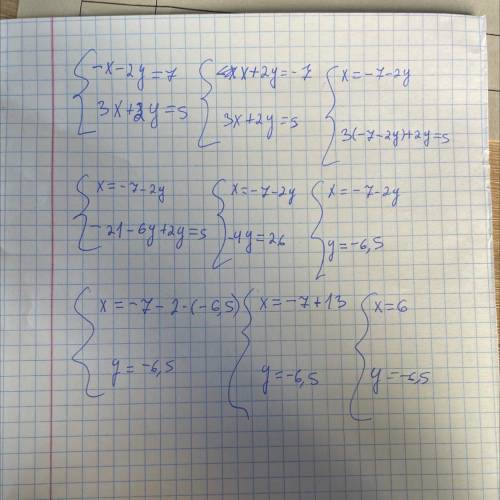 -x-2y=7
3x+2y=5
x+2y=-7
3x+2y=5
x=-7-2y
3(-7-2y)+2y=5
x=-7-2y
-21-6y+2y=5
x=-7-2y
-4y=26
x=-7-2y
y=-6,5
x=-7-2·(-6,5)
y=-6,5
x=-7+13
y=-6,5
x=6
y=-6,5